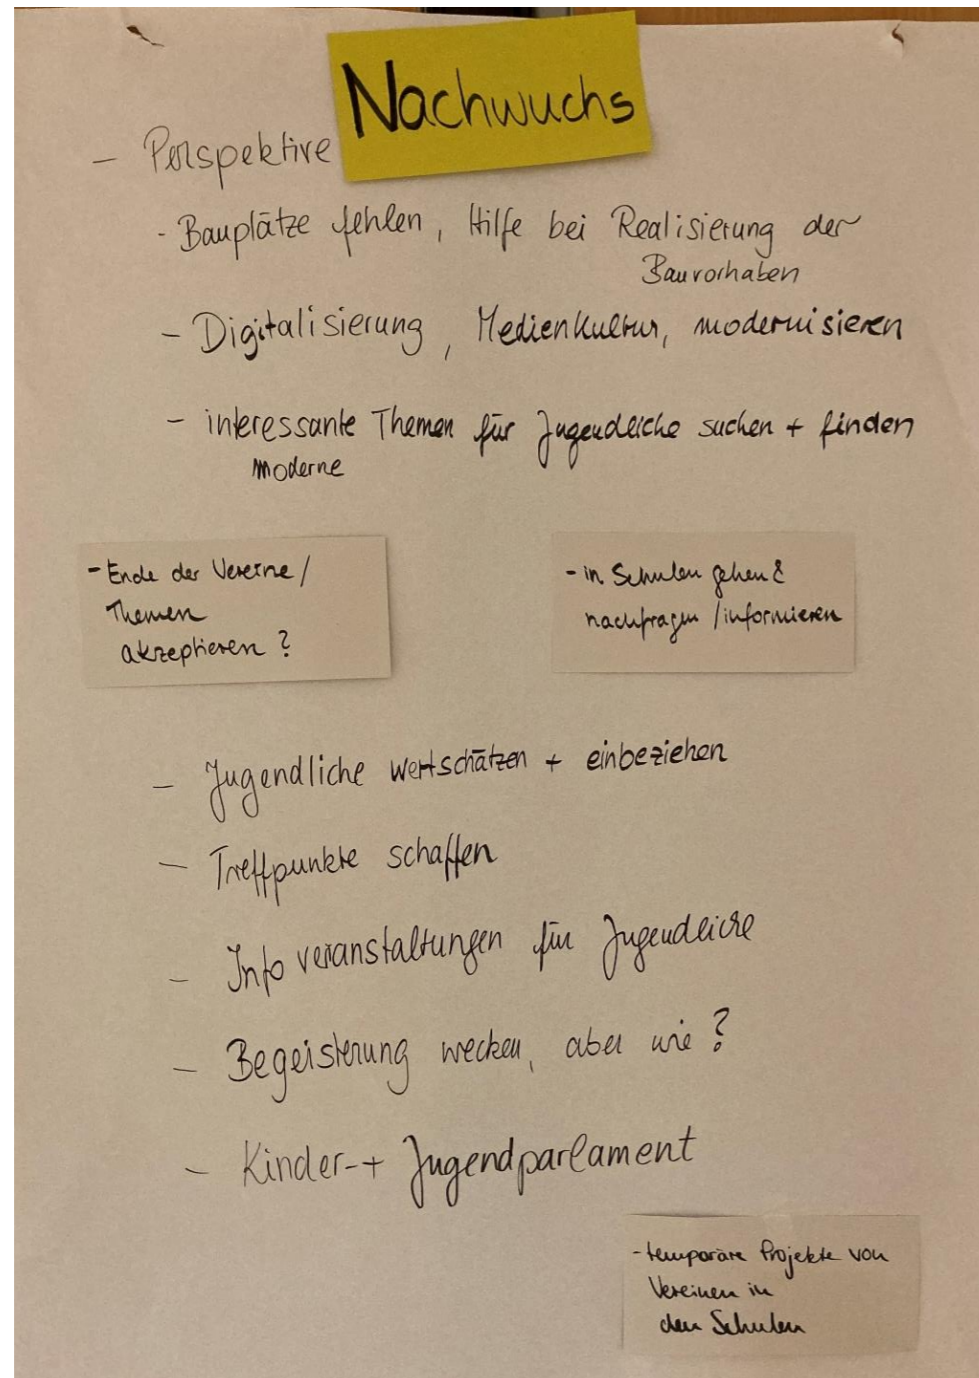 Nachwuchs
- Perspektive
- Bauplätze fehlen, Hilfe bei Realisierung der
Bauvorhaben
- Digitalisierung, Medienkultur, modernisieren
- interessante Themen für Jugendliche suchen + finden
moderne
- Ende der Vereine /
Themen
akzeptieren ?
- in Schulen gehen &
nachfragen / informieren
- Jugendliche wertschätzen + einbeziehen
- Treffpunkte schaffen
- Infoveranstaltungen für Jugendliche
- Begeisterung wecken, aber wie ?
- Kinder- + Jugendparlament
- temporäre Projekte von
Vereinen in
den Schulen